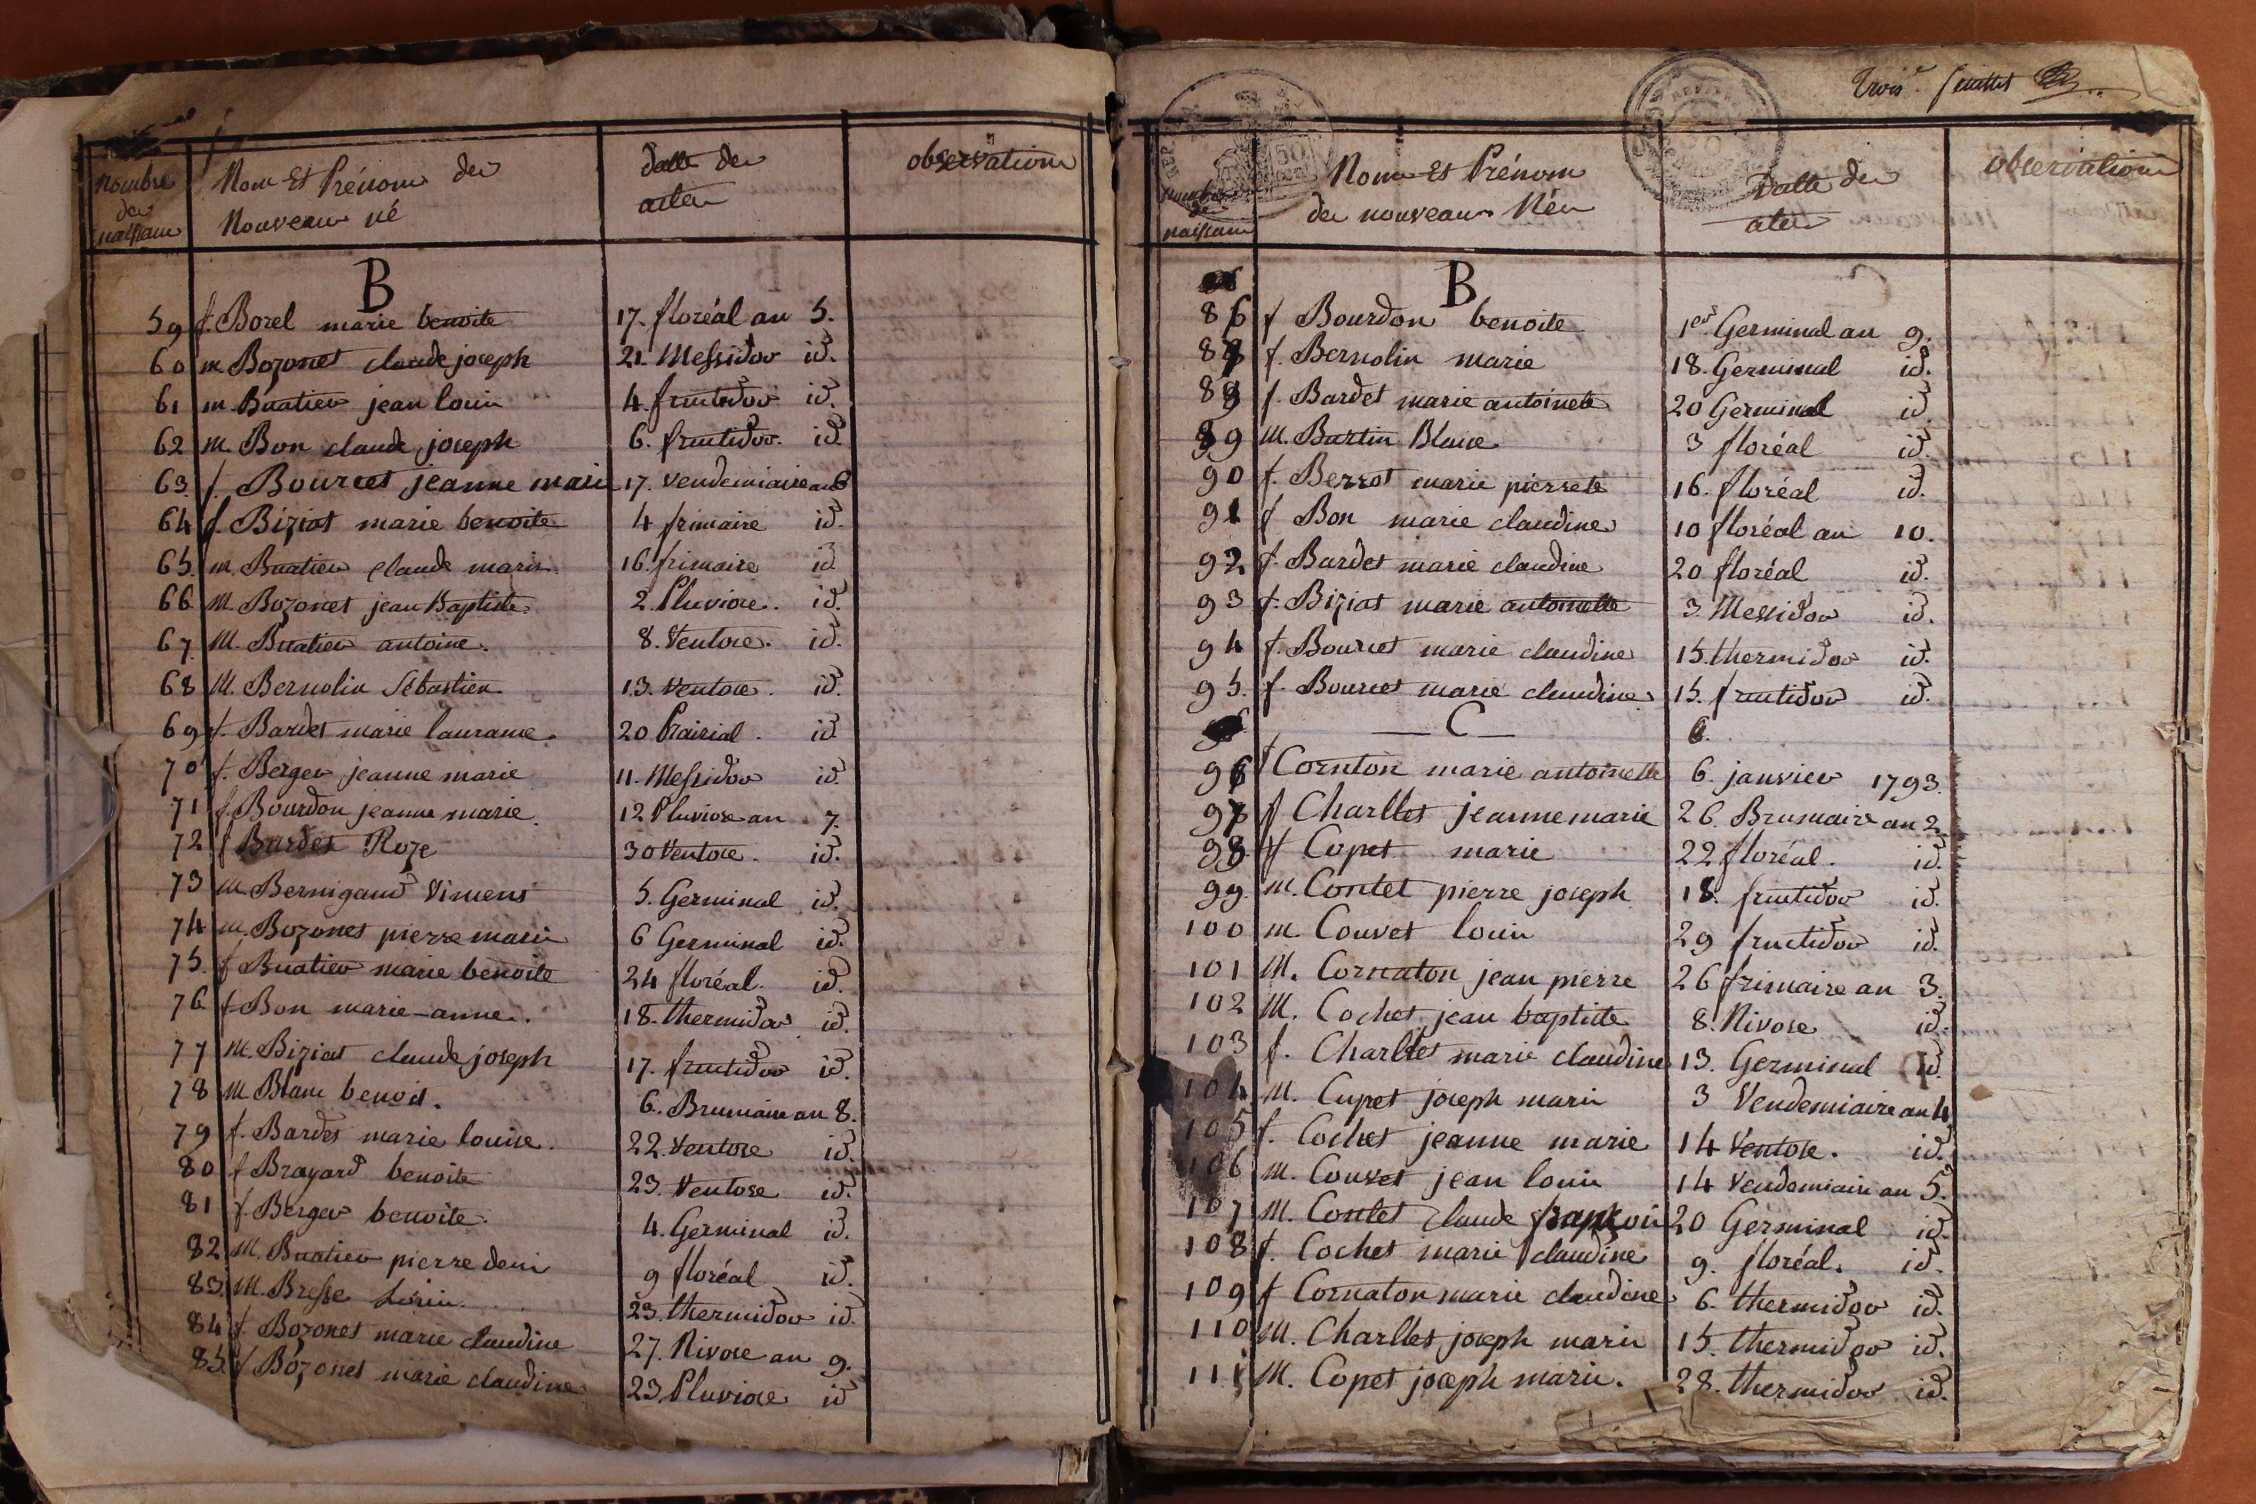 nombre des naissances
Nom Et Prénom des Nouveau né
datte des actes
observations
B
59 f. Borel marie benoite 17. floréal an 5.
60 m Bozonet claude joseph 21. Messidor id.
61 m. Buatier jean louis 4. fructidor id.
62 m. Bon claude joseph 6. fructidor id.
63. f. Bourcet jeanne mari 17. vendemiaire an 6
64 f. Biziat marie benoite 4 frimaire id.
65. m. Buatier claude marie 16. frimaire id
66 M. Bozonet jean Baptiste 2. Pluviose. id.
67. M. Buatier antoine. 8. Ventose. id.
68 M. Bernolin Sébastien 13. Ventose. id.
69 f. Bardet marie laurance. 20 Prairial. id.
70 f. Berger jeanne marie 11. Messidor id.
71 f. Bourdon jeanne marie. 12 Pluviose an 7.
72 f Bardet Roze 30 Ventose. id.
73 m. Bernigaud Vincent 5. Germinal id.
74 m. Bozonet pierre marie 6 Germinal id.
75. f. Buatier marie benoite 24 floréal. id.
76. f. Bon marie-anne. 18. thermidor id.
77 M. Biziat claude joseph 17. fructidor id.
78 m. Blanc benoit. 6. Brumaire an 8.
79 f. Bardet marie louise. 22. Ventose id.
80 f Brayard benoite 23. Ventose id.
81 f. Berger benoite. 4. Germinal id.
82 M. Buatier pierre denis 9 floréal id.
83. M. Bresse 23. thermidor id.
84 f. Bozonet marie claudine 27. Nivose an 9.
85. f Bozonet marie claudine 23. Pluviose id
Trois.e feuillet
nombre de naissance
Nom Et Prénom des nouveaux Nés
Datte des actes
observations
B
86 f Bourdon benoite 1er Germinal an 9.
87 f. Bernolin marie 18. Germinal id.
88 f. Bardet marie antoinete 20 Germinal id
89 M. Bartin Blaise 3 floréal id.
90 f. Berrot marie pierrete 16. floréal id.
91 f Bon marie claudine 10 floréal an 10.
92 f. Bardet marie claudine 20 floréal id.
93 f. Biziat marie antoinette 3. Messidor id.
94 f. Bourcet marie claudine 15. thermidor id.
95. f. Bourcet marie claudine 15. fructidor id.
— C —
96 f Cornton marie antoinette 6. janvier 1793.
97 f Charllet jeanne marie 26. Brumaire an 2
98. f Copet marie 22 floréal. id.
99. m. Contet pierre joseph 18. fructidor id.
100 m. Couvet louis 29 fructidor id.
101 M. Cornaton jean pierre 26 frimaire an 3.
102 M. Cochet jean baptiste 8. Nivose id.
103 f. Charllet marie claudine 13. Germinal id.
104 M. Cupet joseph marie 3 Vendemiaire an 4
105 f. Cochet jeanne marie 14 Ventose. id.
106 m. Couvet jean louis 14 Vendemiaire an 5.
107 M. Contet claude françois 20 Germinal id.
108 f. Cochet marie claudine 9. floréal. id.
109 f Cornaton marie claudine 6. thermidor id.
110 M. Charllet joseph marie 15. thermidor id.
111 M. Copet joseph marie. 28. thermidor id.